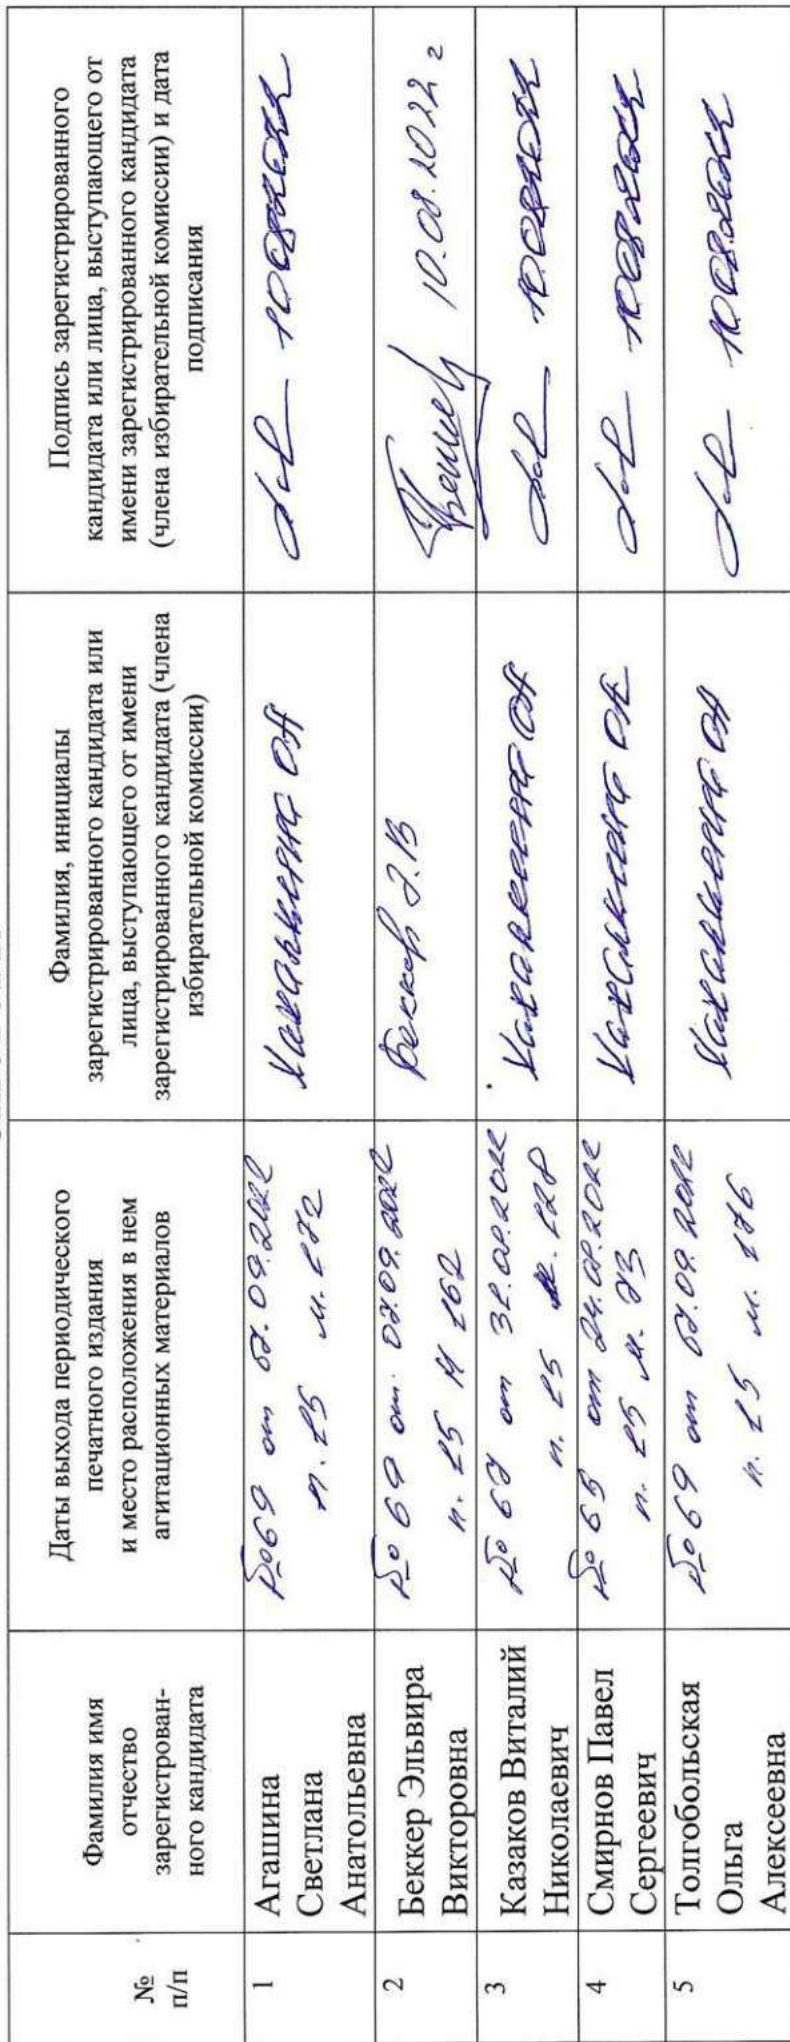 №
п/п
Фамилия имя
отчество
зарегистрирован-
ного кандидата
Даты выхода периодического
печатного издания
и место расположения в нем
агитационных материалов
Фамилия, инициалы
зарегистрированного кандидата или
лица, выступающего от имени
зарегистрированного кандидата (члена
избирательной комиссии)
Подпись зарегистрированного
кандидата или лица, выступающего от
имени зарегистрированного кандидата
(члена избирательной комиссии) и дата
подписания
1
Агашина
Светлана
Анатольевна
№69 от 07.09.2022
п. 15 м. 172
10.08.2022
2
Беккер Эльвира
Викторовна
№ 69 от 07.09.2022
п. 15 м 162
Беккер Э.В
10.08.2022 г
3
Казаков Виталий
Николаевич
№ 67 от 31.08.2022
п. 15 м. 128
10.08.2022
4
Смирнов Павел
Сергеевич
№ 65 от 24.08.2022
п. 15 м. 73
10.08.2022
5
Толгобольская
Ольга
Алексеевна
№ 69 от 07.09.2022
п. 15 м. 176
10.08.2022